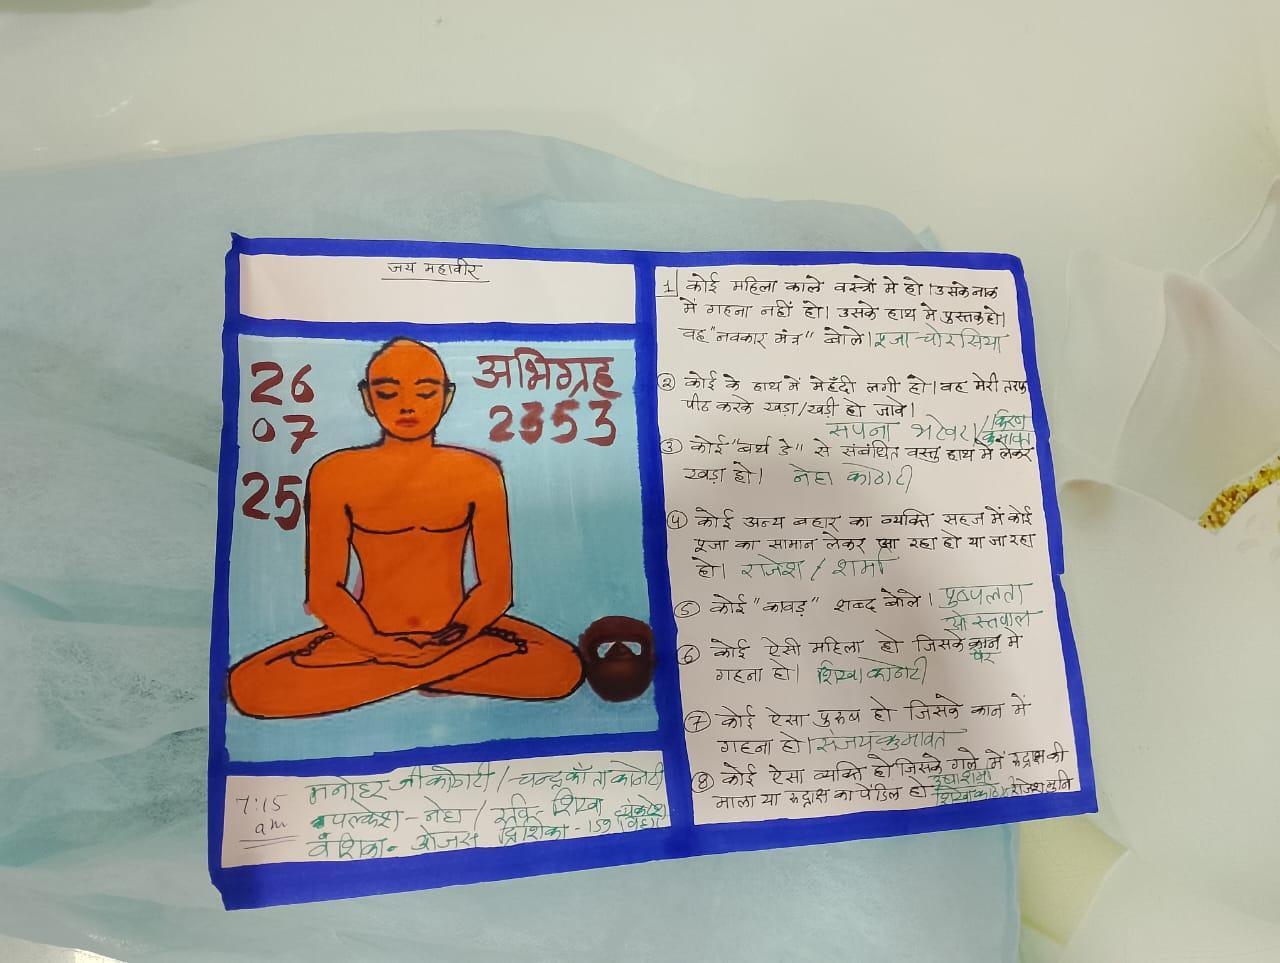 जय महावीर
26
07
25
अभिग्रह
2353
7:15
am
मनोहर जी कोठारी / चन्द्रकाँता कोठारी
पल्केश - नेहा / रवि - शिखा
वंशिका - ओजस
1 कोई महिला काले वस्त्रों मे हो। उसके नाक
में गहना नहीं हो। उसके हाथ मे पुस्तक हो।
वह "नवकार मंत्र" बोले। पूजा चोरसिया
② कोई के हाथ में मेहँदी लगी हो। वह मेरी तरफ
पीठ करके खड़ा/खड़ी हो जावे।
सपना भटेवरा / किरण
कुमावत
③ कोई "बर्थ डे" से संबंधित वस्तु हाथ मे लेकर
खड़ा हो। नेहा कोठारी
④ कोई अन्य बहार का व्यक्ति सहज में कोई
पूजा का सामान लेकर आ रहा हो या जा रहा
हो। राजेश / शर्मा
⑤ कोई "कावड़" शब्द बोले। पुष्पलता
ओस्तवाल
⑥ कोई ऐसी महिला हो जिसके कान मे
पैर
गहना हो। शिखा कोठारी
⑦ कोई ऐसा पुरुष हो जिसके कान में
गहना हो। संजय कुमावत
⑧ कोई ऐसा व्यक्ति हो जिसके गले में रुद्राक्ष की
माला या रुद्राक्ष का पेंडिल हो
उषा शर्मा
शिखा कोठारी राजेश मुनि